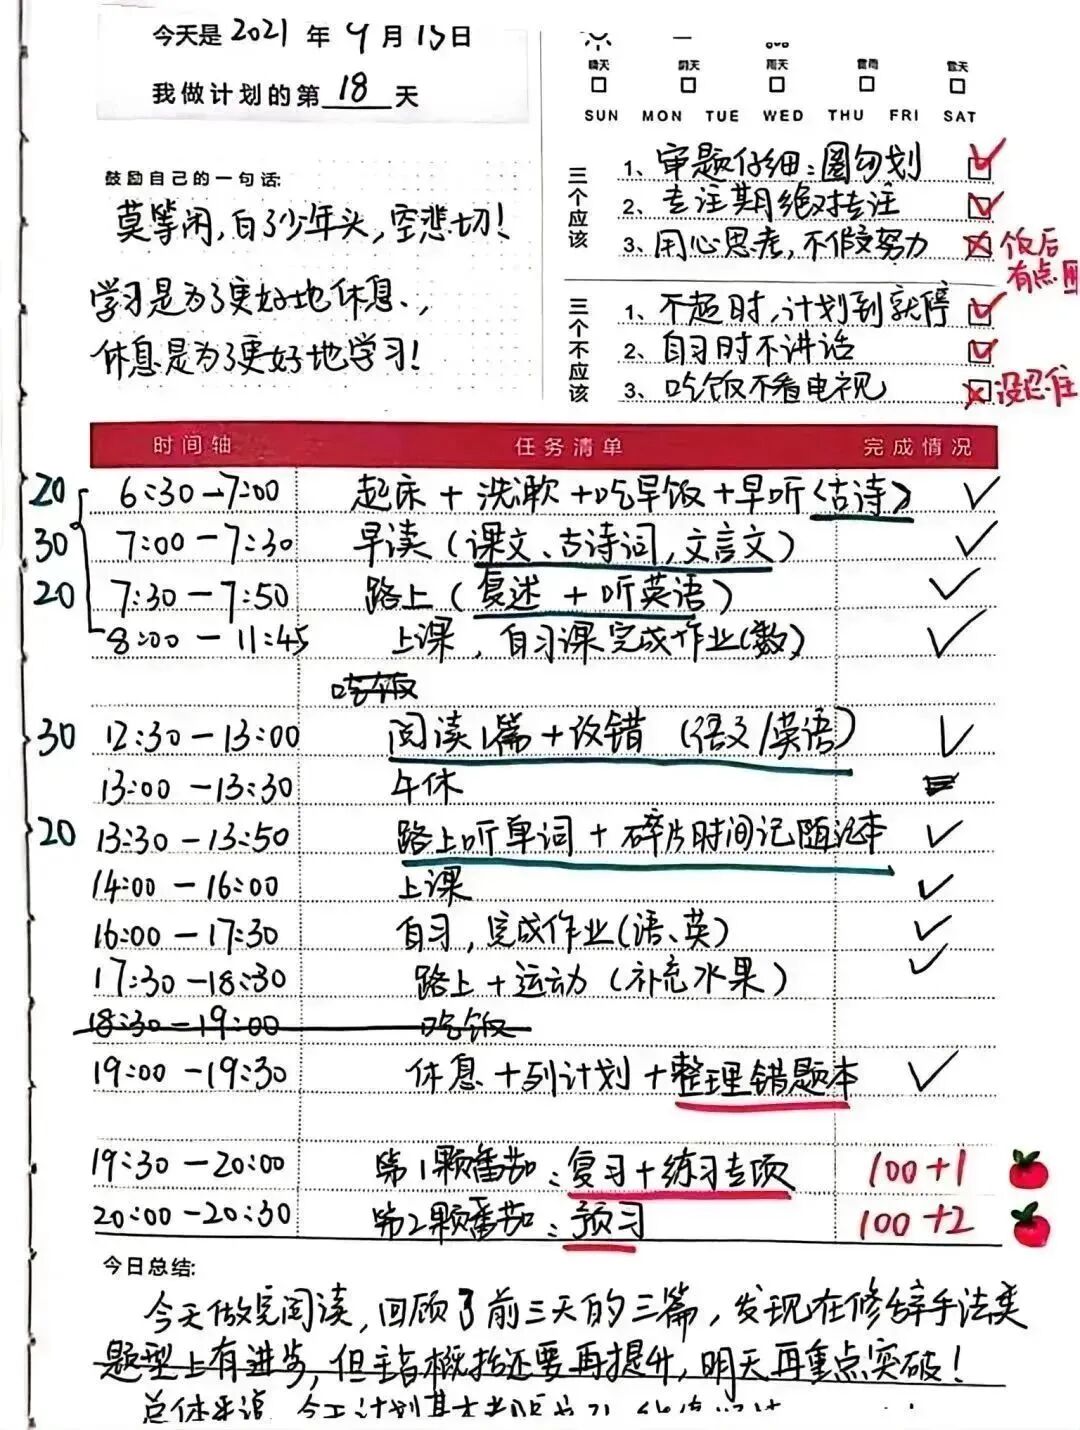 今天是 2021 年 4 月 13 日
我做计划的第 18 天
晴天 阴天 雨天 雷雨 雪天
SUN MON TUE WED THU FRI SAT
鼓励自己的一句话:
莫等闲,白了少年头,空悲切!
学习是为了更好地休息.,
休息是为了更好地学习!
三个应该
1、审题仔细:圈勾划
2、专注期绝对专注
3、用心思考,不假努力
饭后
有点困
三个不应该
1、不超时,计划到就停
2、自习时不讲话
3、吃饭不看电视
没忍住
时间轴 任务清单 完成情况
20 6:30—7:00 起床+洗漱+吃早饭+早听《古诗》 ✓
30 7:00—7:30 早读(课文、古诗词,文言文) ✓
20 7:30—7:50 路上(复述+听英语) ✓
8:00—11:45 上课,自习课完成作业(数) ✓
吃饭
30 12:30—13:00 阅读1篇+改错(语文/英语) ✓
13:00—13:30 午休
20 13:30—13:50 路上听单词+碎片时间记随记本 ✓
14:00—16:00 上课 ✓
16:00—17:30 自习,完成作业(语、英) ✓
17:30—18:30 路上+运动(补充水果) ✓
18:30—19:00 吃饭
19:00—19:30 休息+列计划+整理错题本 ✓
19:30—20:00 第1颗番茄:复习+练习专项 100+1
20:00—20:30 第2颗番茄:预习 100+2
今日总结:
今天做完阅读,回顾了前三天的三篇,发现在修辞手法类
题型上有进步,但主旨概括还要再提升,明天再重点突破!
总体来说,今天计划基本